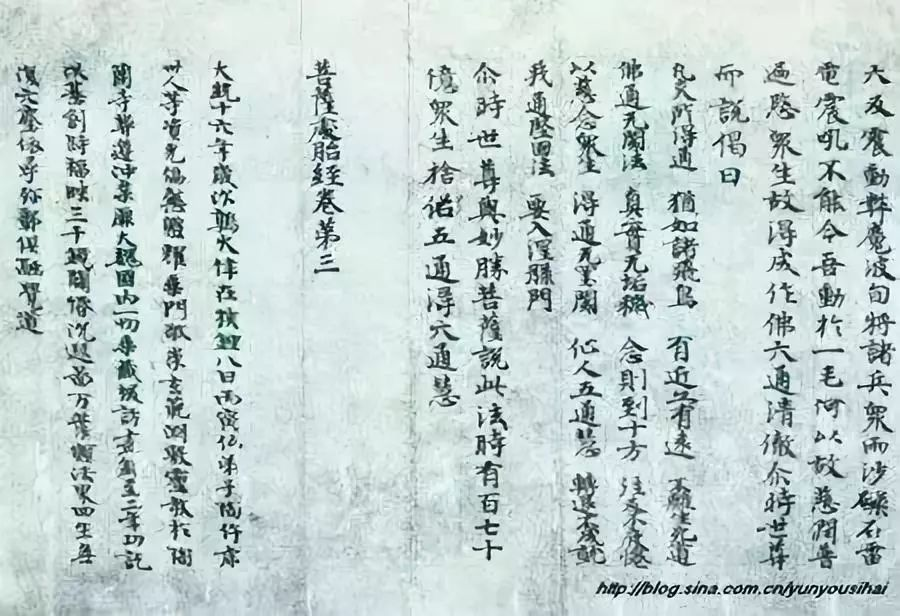 大及震動弊魔波旬將諸兵衆雨沙礫石雷
電震吼不能令吾動於一毛何以故慈潤普
遍愍衆生故得成作佛六通清徹尒時世尊
而說偈曰
凡夫所得通 猶如諸飛鳥 有近亦有遠 不離生死道
佛通无閡法 真實无垢穢 念則到十方 往来不疲惓
以慈念衆生 得通无罣閡 仙人五通慧 轉退不成就
我通堅固法 要入涅槃門
尒時世尊與妙勝菩薩說此法時有百七十
億衆生捨俗五通得六通慧
菩薩處胎經卷第三
大統十六年歲次鶉火律在八日丙寅仏弟子陶仵
卅人等門敬崇玄範於陶
蘭寺大魏國内一切集藏訪盡至二年功訖
以茲創福三千
覺道
http://blog.sina.com.cn/yunyousihai